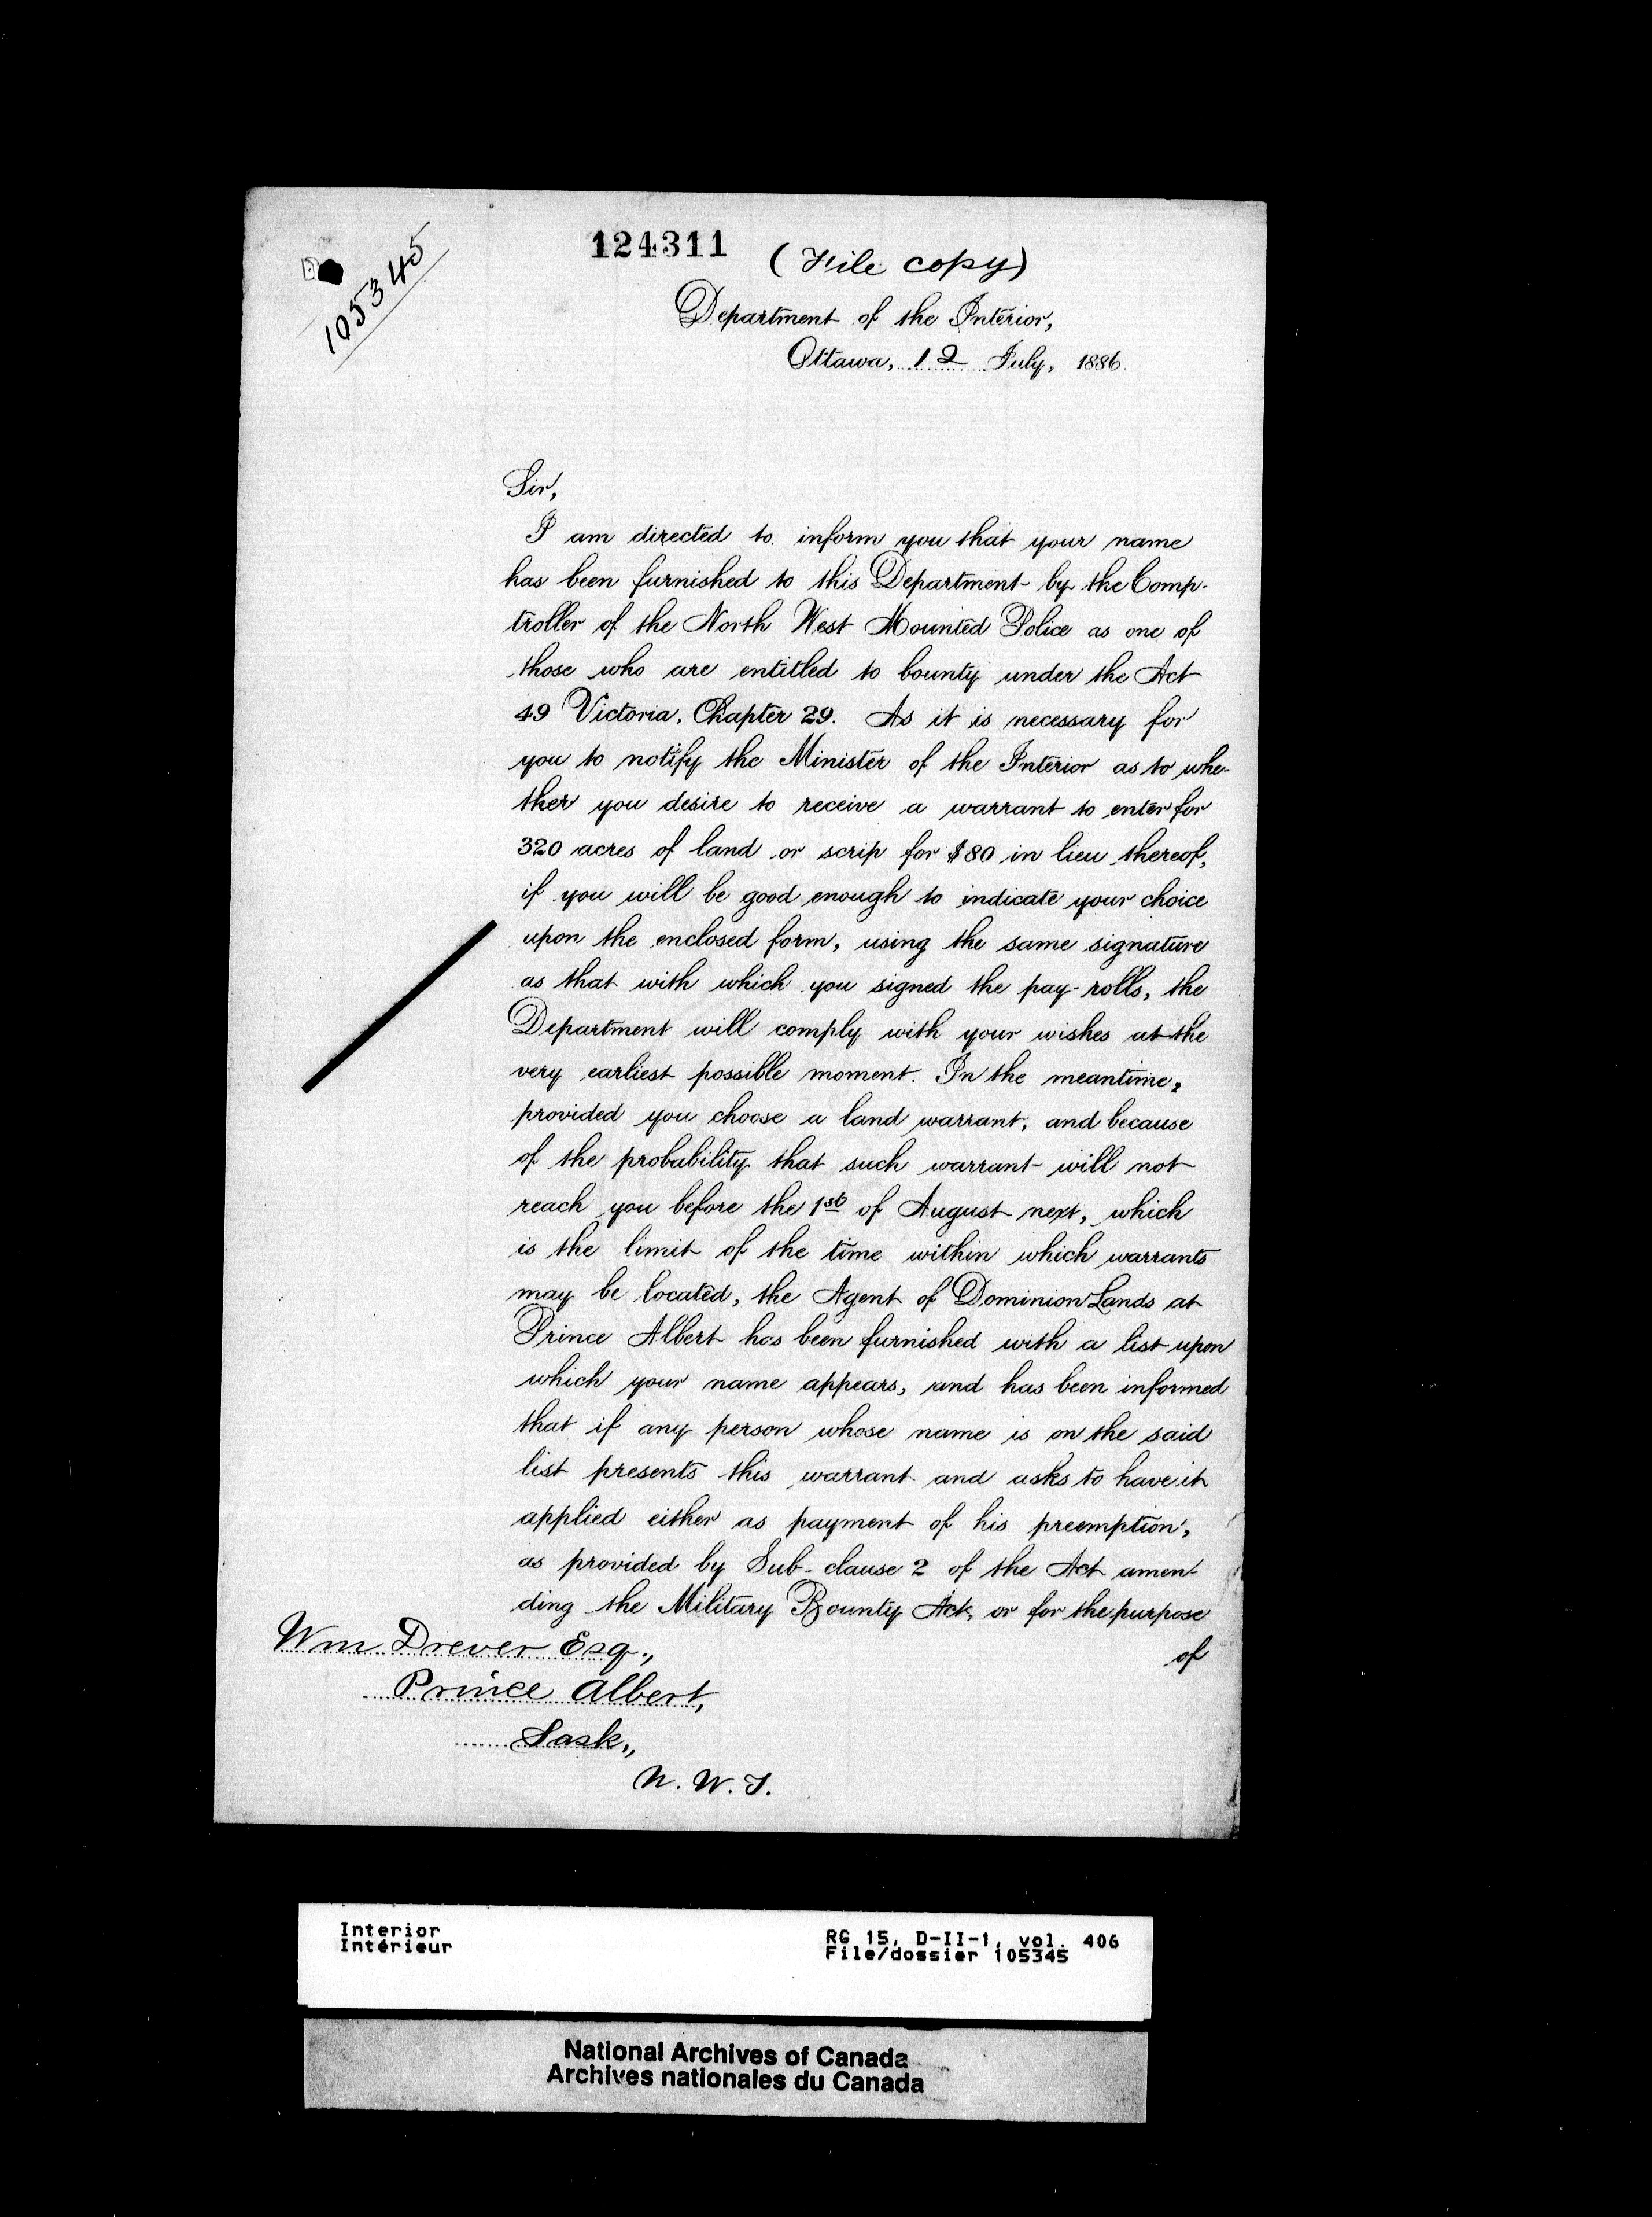 105345
124311
(File copy)
Department of the Interior,
Ottawa, 12 July, 1886.
Sir,
I am directed to inform you that your name
has been furnished to this Department by the Comp-
troller of the North West Mounted Police as one of
those who are entitled to bounty under the Act
49 Victoria, Chapter 29. As it is necessary for
you to notify the Minister of the Interior as to whe-
ther you desire to receive a warrant to enter for
320 acres of land or scrip for $80 in lieu thereof,
if you will be good enough to indicate your choice
upon the enclosed form, using the same signature
as that with which you signed the pay-rolls, the
Department will comply with your wishes at the
very earliest possible moment. In the meantime,
provided you choose a land warrant, and because
of the probability that such warrant will not
reach you before the 1st of August next, which
is the limit of the time within which warrants
may be located, the Agent of Dominion Lands at
Prince Albert has been furnished with a list upon
which your name appears, and has been informed
that if any person whose name is on the said
list presents this warrant and asks to have it
applied either as payment of his preemption,
as provided by Sub-clause 2 of the Act amen-
ding the Military Bounty Act, or for the purpose
of
Wm. Drever Esq.,
Prince Albert,
Sask.,
N. W. T.
Interior
Intérieur
RG 15, D-II-1, vol. 406
File/dossier 105345
National Archives of Canada
Archives nationales du Canada